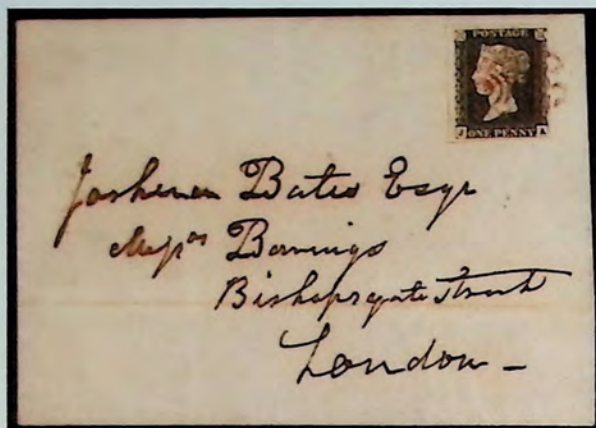 POSTAGE
J ONE PENNY
Joshua Bates Esqr
Messrs Barings
Bishopsgate Street
London